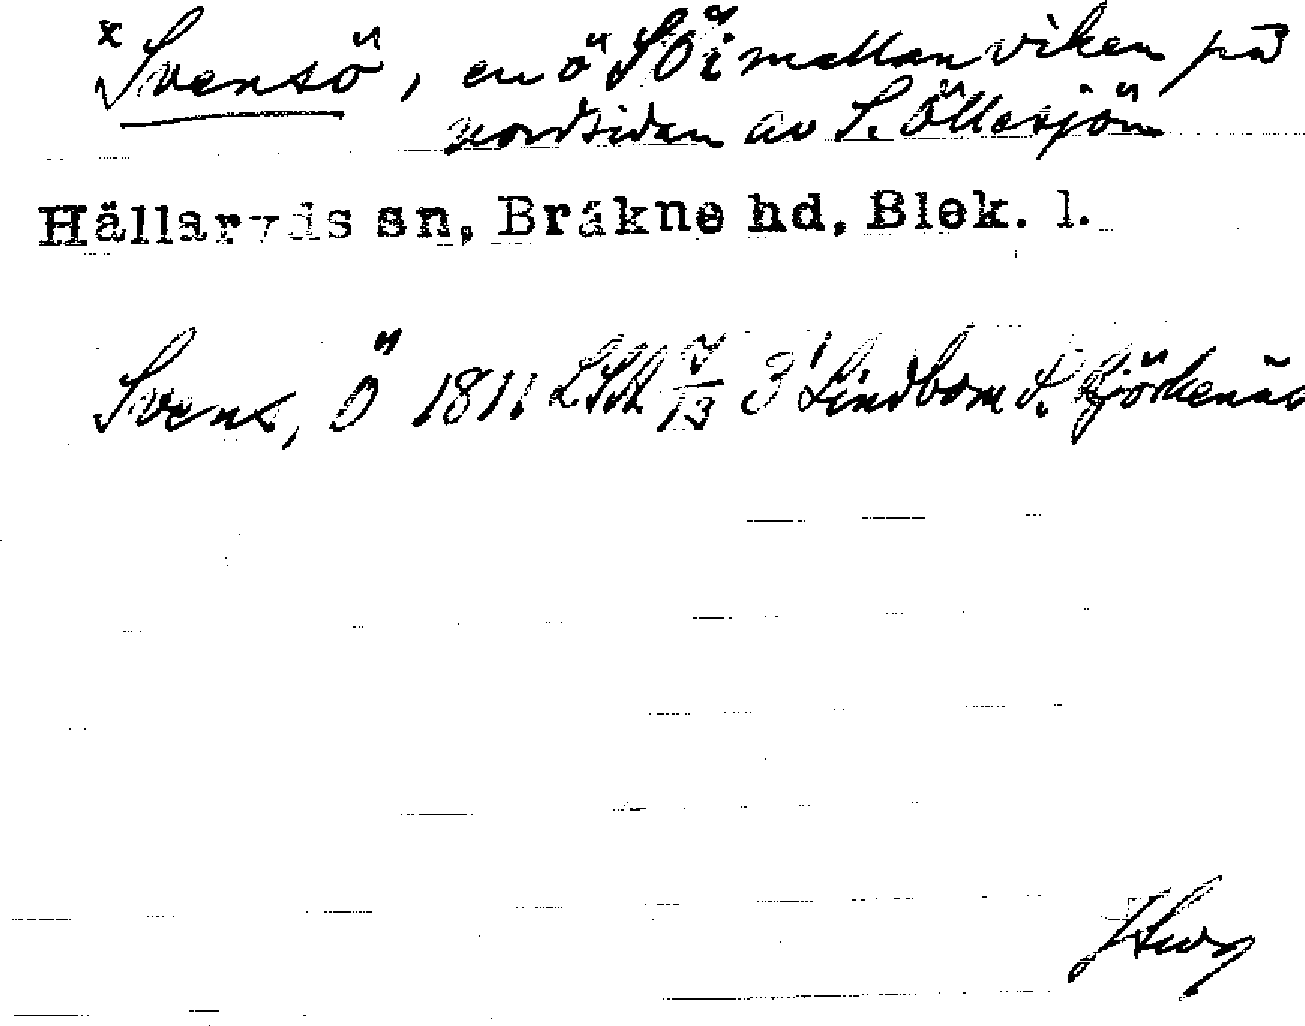 x Svensö, en ö SÖ i mellanviken på
nordsidan av S. Öllesjön
Hällaryds sn, Bräkne hd, Blek. l.
Svens, Ö 1811 LSA 7/13 3 Lindbom S. Björkenäs